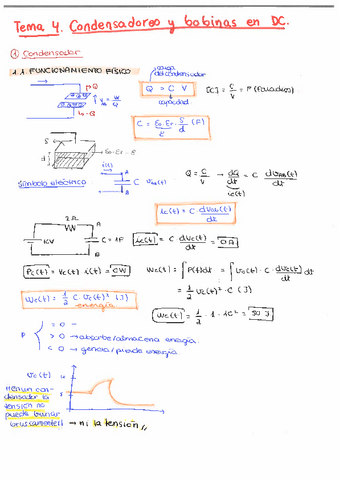 Tema 4. Condensadores y bobinas en DC.
① Condensador
1.1. FUNCIONAMIENTO FÍSICO
carga del condensador
Q = C V
capacidad
[C] = C/V = F (Faradios)
C = ε₀·εᵣ · S/d (F)
S
d
ε₀·εᵣ = ε
i(t)
A
B
Símbolo eléctrico
C
Q = C/V → dQ/dt = C dVAB(t)/dt
ic(t)
ic(t) = C dVc(t)/dt
2Ω
A
10V
C = 1F
B
ic(t) = C dVc(t)/dt = 0A
Pc(t) = Vc(t) · i(t) = 0W
Wc(t) = ∫P(t)dt = ∫Vc(t) · C dVc(t)/dt dt
= 1/2 Vc(t)² · C (J)
Wc(t) = 1/2 C · Vc(t)² (J)
energía
Wc(t) = 1/2 · 1 · 10² = 50 J
P
= 0 -
> 0 → absorbe/almacena energía
< 0 → genera/pierde energía
Vc(t)
10
5
t
la tensión no
puede variar
bruscamente
→ ni la tensión